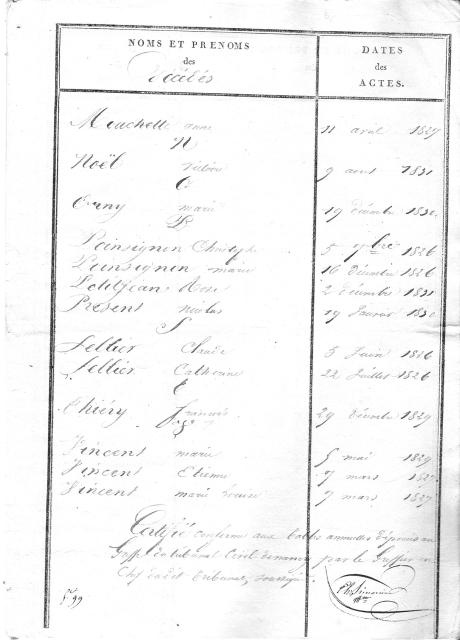 NOMS ET PRENOMS
des
Décédés
DATES
des
ACTES.
Mouchette anne 11 avril 1829
N
Noël 9 aout 1831
O
Orny marie 19 décembre
P
Poinsignon Christophe 5 9bre 1826
Poinsignon marie 16 décembre 1826
Petitjean Rose 2 décembre 1831
Présent nicolas 19 Janvier 1830
S
Sellier Claude 5 Juin 1826
Sellier Catherine 22 Juillet 1826
T
Thiéry françois 29 décembre 1829
V
Vincent marie 5 mai 1829
Vincent Etienne 7 mars 1827
Vincent marie Louise 7 mars 1827
Certifié conforme aux tables annuelles déposées au
Greffe du tribunal Civil de nancy par le Greffier en
Chef dudit tribunal, soussigné